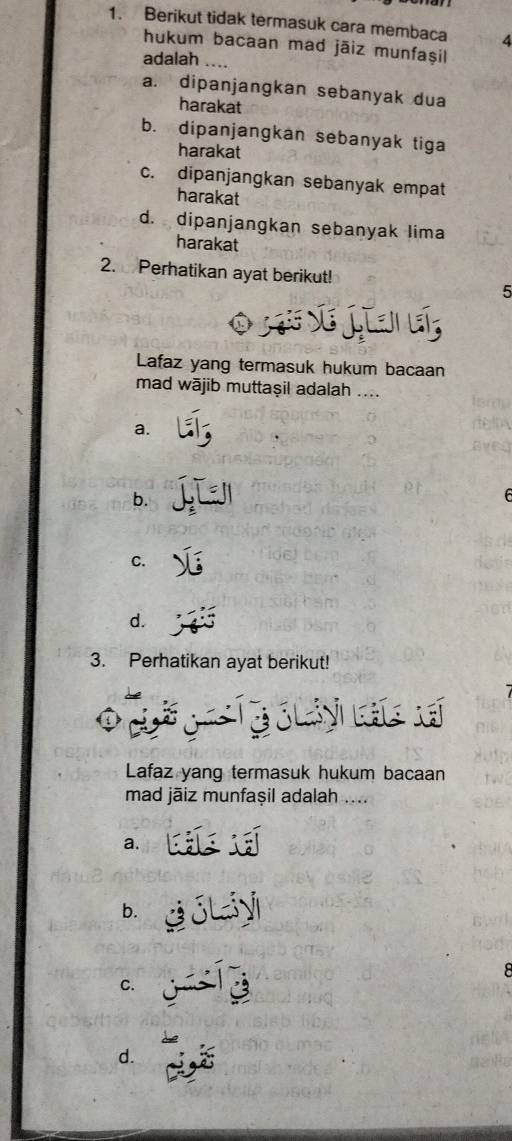 1. Berikut tidak termasuk cara membaca
hukum bacaan mad jāiz munfaṣil
adalah ....
a. dipanjangkan sebanyak dua
harakat
b. dipanjangkan sebanyak tiga
harakat
c. dipanjangkan sebanyak empat
harakat
d. dipanjangkan sebanyak lima
harakat
2. Perhatikan ayat berikut!
وَاَمَّا السَّاۤىِٕلَ فَلَا تَنْهَرْ ۝١٠
Lafaz yang termasuk hukum bacaan
mad wājib muttaṣil adalah ....
a. وَاَمَّا
b. السَّاۤىِٕلَ
c. فَلَا
d. تَنْهَرْ
3. Perhatikan ayat berikut!
لَقَدْ خَلَقْنَا الْاِنْسَانَ فِيْٓ اَحْسَنِ تَقْوِيْمٍۖ ۝٤
Lafaz yang termasuk hukum bacaan
mad jāiz munfaṣil adalah ....
a. لَقَدْ خَلَقْنَا
b. الْاِنْسَانَ فِيْ
c. فِيْٓ اَحْسَنِ
d. تَقْوِيْمٍۖ
4
5
6
7
8